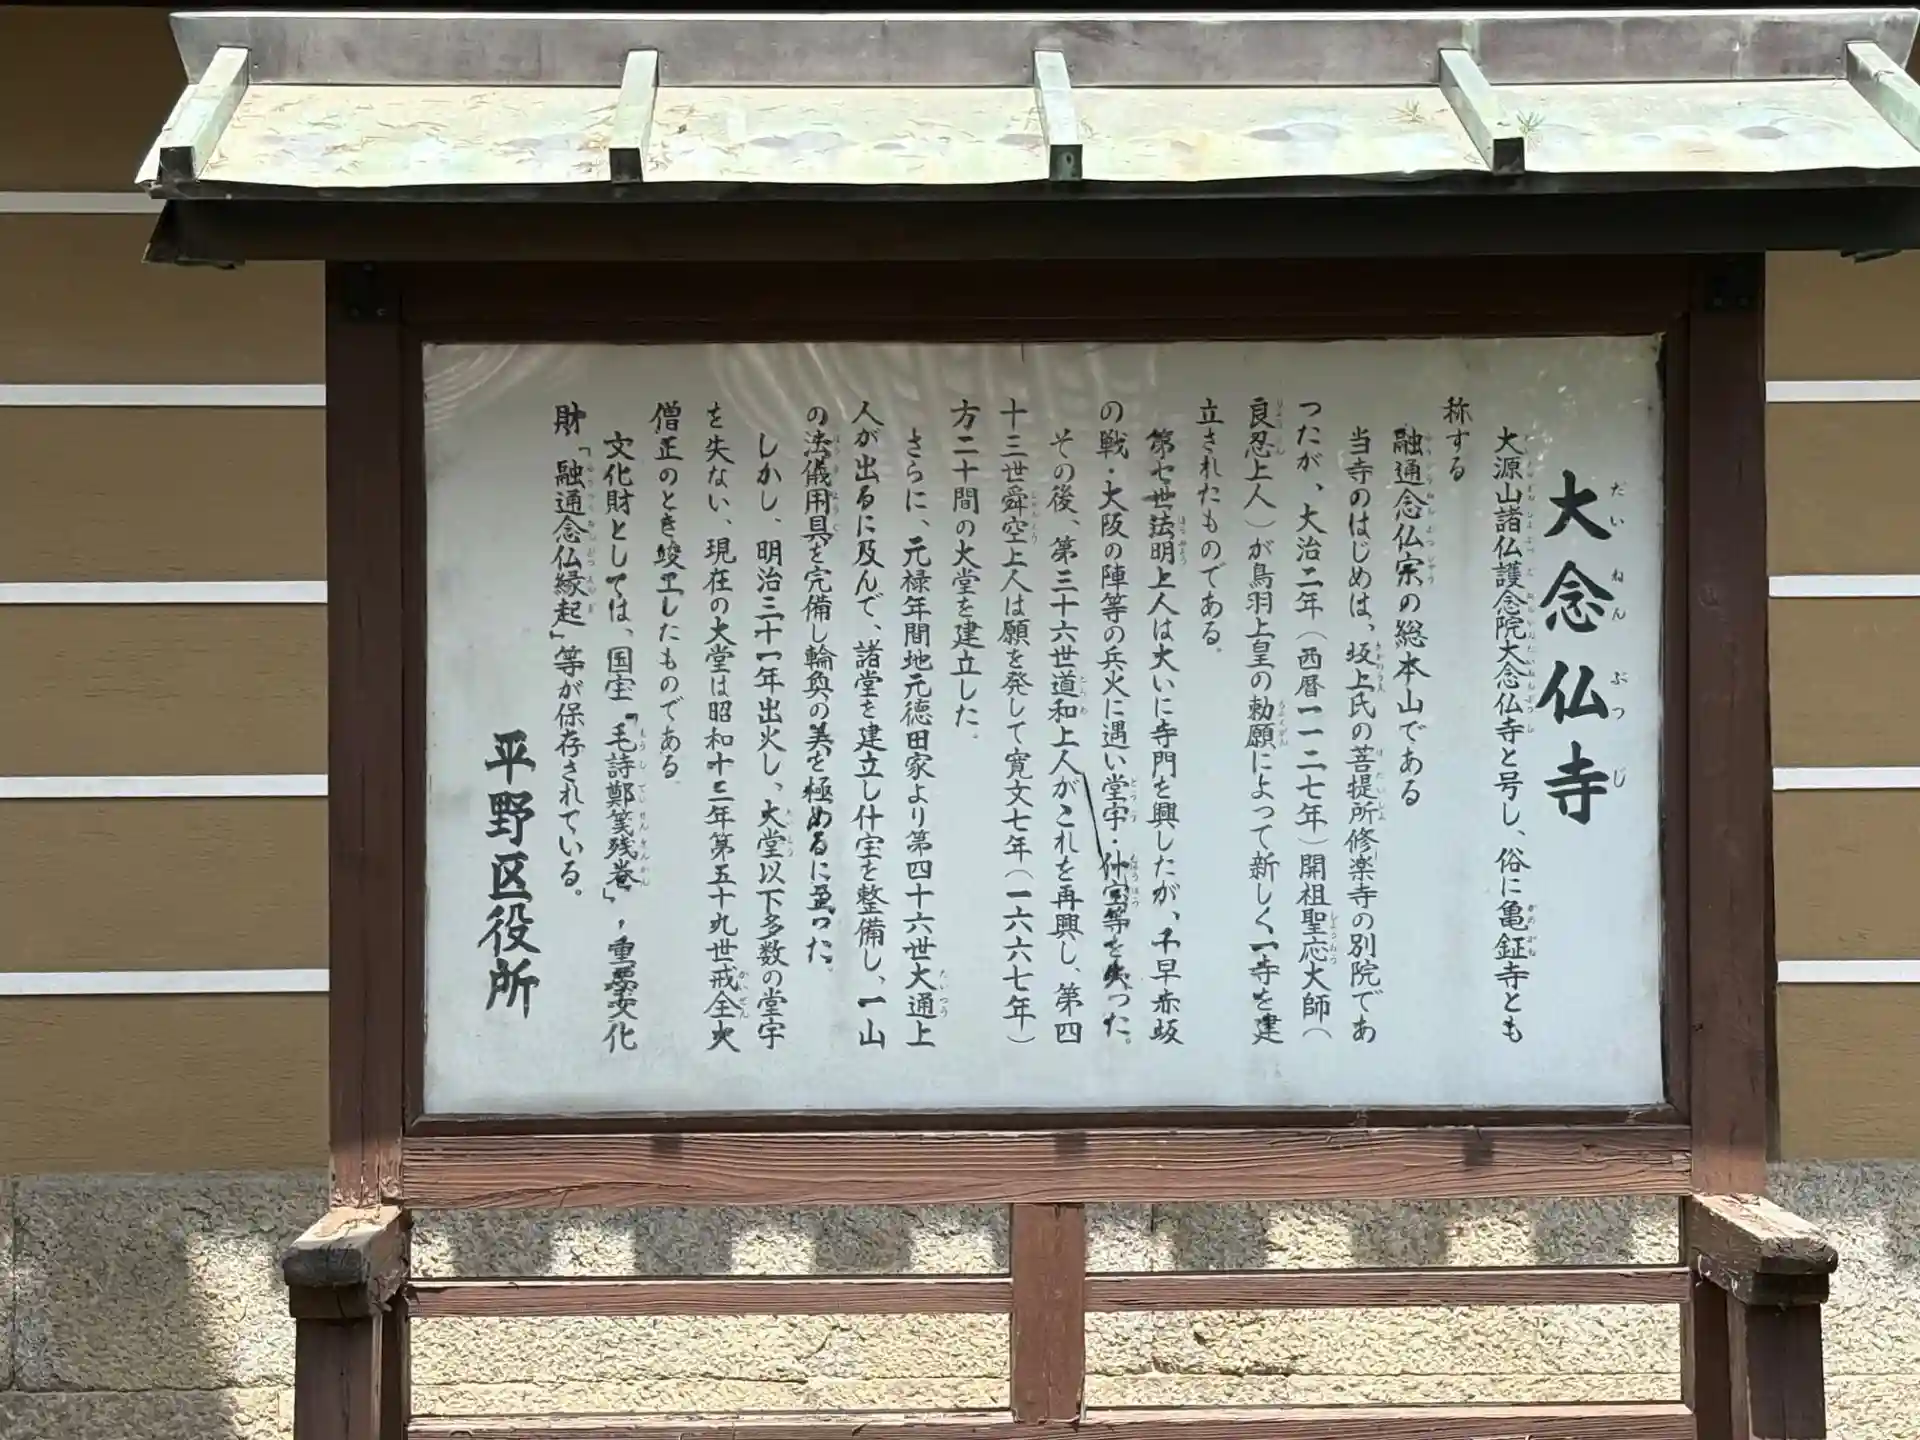 大念仏寺
大源山諸仏護念院大念仏寺と号し、俗に亀鉦寺とも
称する
融通念仏宗の総本山である
当寺のはじめは、坂上氏の菩提所修楽寺の別院であ
ったが、大治二年（西暦一一二七年）開祖聖応大師（
良忍上人）が鳥羽上皇の勅願によって新しく一寺を建
立されたものである。
第七世法明上人は大いに寺門を興したが、千早赤坂
の戦・大阪の陣等の兵火に遇い堂宇・什宝等を失った。
その後、第三十六世道和上人がこれを再興し、第四
十三世舜空上人は願を発して寛文七年（一六六七年）
方二十間の大堂を建立した。
さらに、元禄年間地元徳田家より第四十六世大通上
人が出るに及んで、諸堂を建立し什宝を整備し、一山
の法儀用具を完備し輪奐の美を極めるに至った。
しかし、明治三十一年出火し、大堂以下多数の堂宇
を失ない、現在の大堂は昭和十三年第五十九世戒全大
僧正のとき竣工したものである。
文化財としては、国宝「毛詩鄭箋残巻」，重要文化
財「融通念仏縁起」等が保存されている。
平野区役所